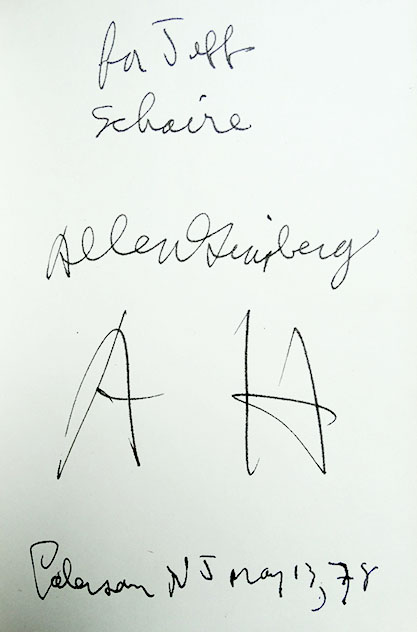 for Jeff
Schaire
Allen Ginsberg
A H
Paterson NJ May 13, 78